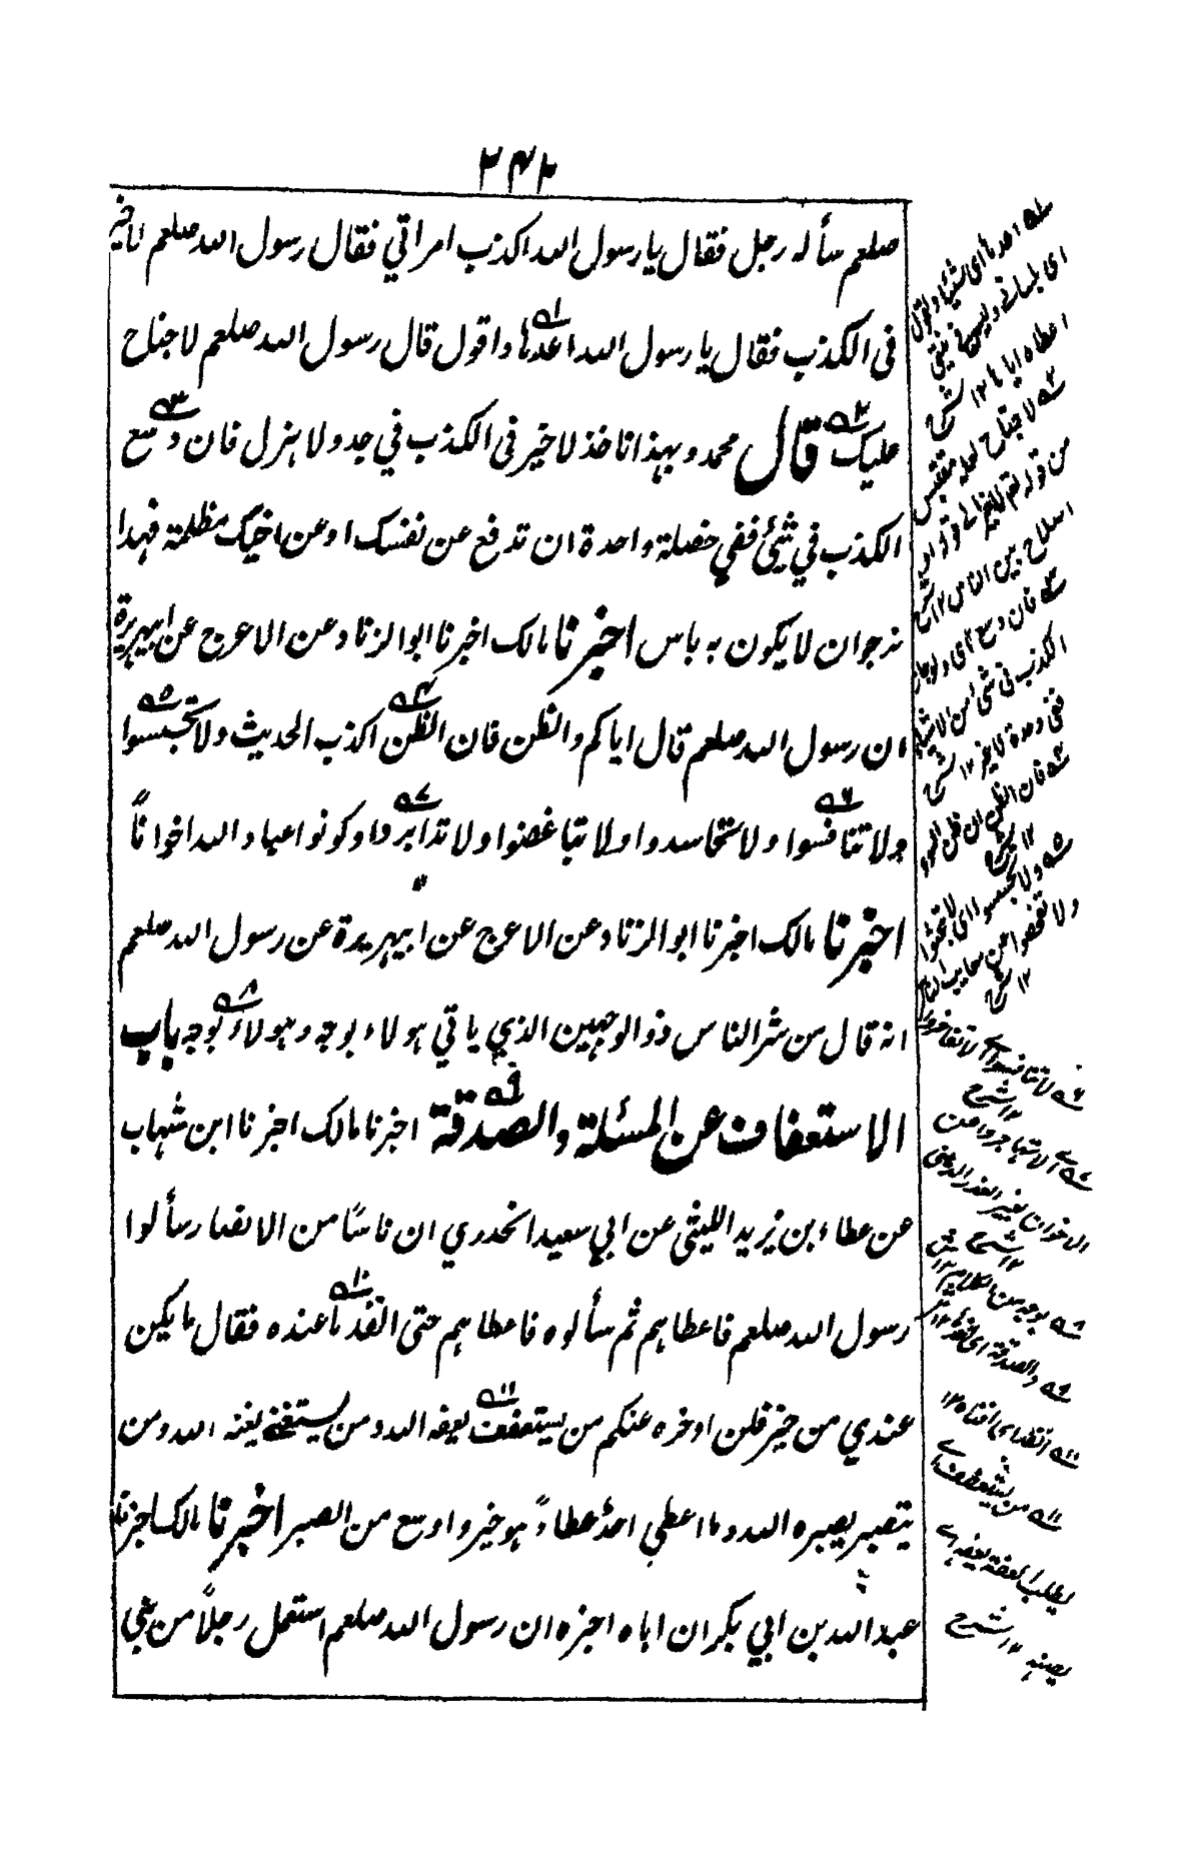 ۲۴۲
صلعم سأله رجل فقال يا رسول الله اكذب امراتي فقال رسول الله صلعم لا خير
فى الكذب فقال يا رسول الله اعدها واقول قال رسول الله صلعم لا جناح
عليك قال محمد وبهذا ناخذ لا خير فى الكذب في جد ولا هزل فان وسع
الكذب في شئ ففي خصلة واحدة ان تدفع عن نفسك او عن اخيك مظلمة فهذا
نرجو ان لا يكون به باس اخبرنا مالك اخبرنا ابو الزناد عن الاعرج عن ابيهريرة
ان رسول الله صلعم قال اياكم والظن فان الظن اكذب الحديث ولا تجسسوا
ولا تنافسوا ولا تحاسدوا ولا تباغضوا ولا تدابروا وكونوا عباد الله اخوانًا
اخبرنا مالك اخبرنا ابو الزناد عن الاعرج عن ابيهريرة عن رسول الله صلعم
انه قال من شر الناس ذو الوجهين الذي ياتي هولاء بوجه وهولاء بوجه باب
الاستعفاف عن المسئلة والصدقة اخبرنا مالك اخبرنا ابن شهاب
عن عطاء بن يزيد الليثى عن ابي سعيد الخدري ان ناسًا من الانصار سألوا
رسول الله صلعم فاعطاهم ثم سألوه فاعطاهم حتى انفد ما عنده فقال ما يكن
عندي من خير فلن ادخره عنكم من يستعفف يعفه الله ومن يستغن يغنه الله ومن
يتصبر يصبره الله وما اعطي احدٌ عطاءً هو خير واوسع من الصبر اخبرنا مالك اخبرنا
عبد الله بن ابي بكر ان اباه اخبره ان رسول الله صلعم استعمل رجلًا من بني
اعطاه اياها ۱۲ شرح
لا جناح لعله مقتبس
اصلاح بين الناس ۱۲ شرح
فان وسع اى ولو جاز
الكذب فى شئ من الاشياء
فان الظن
ولا تجسسوا اى لا تبحثوا
۱۲ شرح
لا تنافسوا
۱۲ شرح
۱۲ شرح
بوجه من الكلام
والصدقة
انفد اى افناه ۱۲
من يستعفف
يطلب العفة يعفه
يصنه ۱۲ شرح